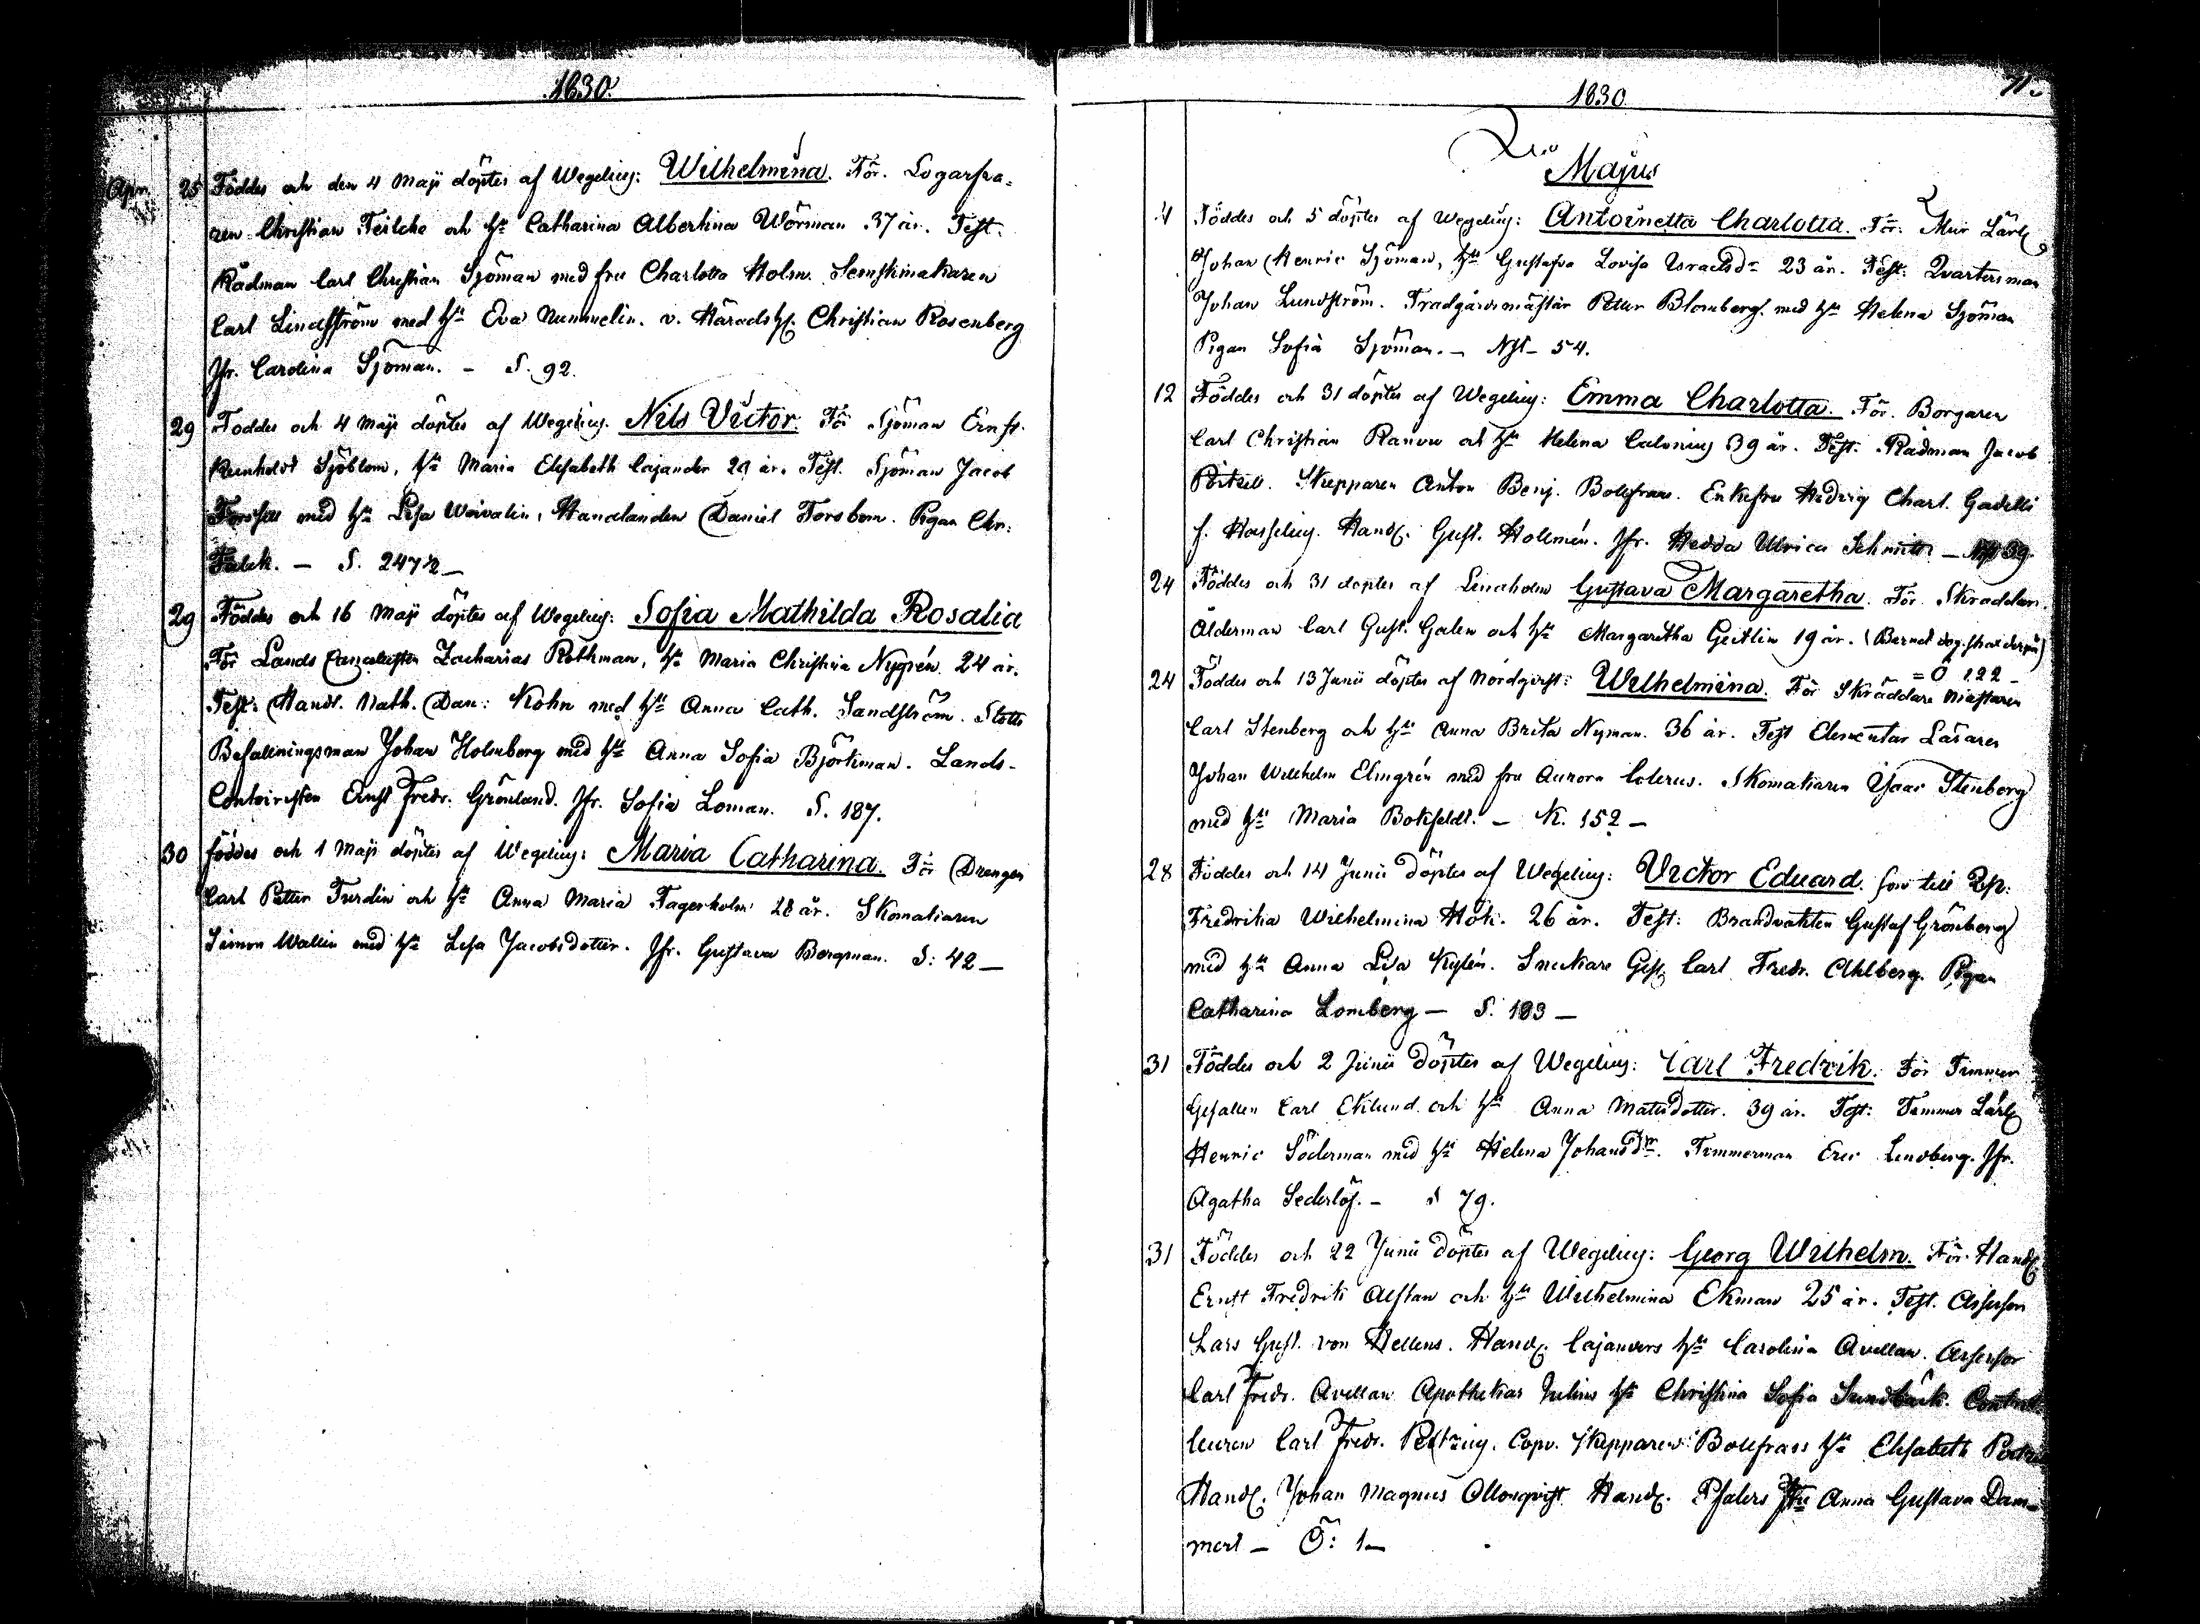 1830.
Apr. 25 Föddes och den 4 Maji döptes af Wegelius: Wilhelmina. För. Logarfva-
ren Christian Teilche och h:u Catharina Albertina Wörman 37 år. Test:
Rådman Carl Christian Sjöman med fru Charlotta Holm. Semskmakaren
Carl Lindström med h:u Eva Nummelin. v. Häradsh. Christian Rosenberg
Jfr. Carolina Sjöman. - S. 92.
29 Föddes och 4 Maji döptes af Wegelius. Nils Victor. För Sjöman Ernst
Reinhold Sjöblom, h:u Maria Elisabeth Cajander 29 år. Test. Sjöman Jacob
med h:u Lisa Waivalin, Handlanden Daniel Forsbom. Pigan Chr:
Falck. - S. 247½ -
29 Föddes och 16 Maji döptes af Wegelius: Sofia Mathilda Rosalia
För Lands Cancelisten Zacharias Rothman, h:u Maria Christina Nygrén. 24 år.
Test: Handl. Nath. Dan: Kohn med h:u Anna Cath. Sandström. Slotts
Befallningsman Johan Holmberg med h:u Anna Sofia Björkman. Lands-
Contoiristen Ernst Fredr. Grönlund. Jfr. Sofia Loman. S. 187.
30 föddes och 1 Maji döptes af Wegelius: Maria Catharina. För Drengen
Carl Petter Turdin och h:u Anna Maria Fagerholm 28 år. Skomakaren
Simon Wallin med h:u Lisa Jacobsdotter. Jfr. Gustava Bergman. S: 42 -
1830
71.
Majus
4 Föddes och 5 döptes af Wegelius: Antoinetta Charlotta. För: Mur Lärl.
Johan Henric Sjöman, h:u Gustafva Lovisa Israelsd:r 23 år. Test: Qvartersman
Johan Lundström. Trädgårdsmästar Petter Blomberg. med h:u Helena Sjöman
Pigan Sofia Sjöman. - Nst - 54.
12 Föddes och 31 döptes af Wegelius: Emma Charlotta. För. Borgaren
Carl Christian Ranou och h:u Helena Calonius 39 år. Test. Rådman Jacob
Skepparen Anton Benj. Bolefrass. Enkefru Hedvig Charl. Gadelli
f. Hasselius. Handl. Gust. Hollmén. Jfr. Hedda Ulrica Schmidt - 39.
24 Föddes och 31 döptes af Lindholm Gustava Margaretha. För Skräddare.
Ålderman Carl Gust. Galen och h:u Margaretha Geitlin 19 år. (Barnet dog strax derpå)
= Ö 122 -
24 Föddes och 13 Junii döptes af Nordqvist: Wilhelmina. För Skräddare mästaren
Carl Stenberg och h:u Anna Brita Nyman. 36 år. Test Elementar Läraren
Johan Wilhelm Elmgrén med fru Aurora Colerus. Skomakaren Isaac Stenberg
med h:u Maria Bokfeldt. - K. 152 -
28 Föddes och 14 Junii döptes af Wegelius: Victor Eduard. son till Qp:
Fredrika Wilhelmina Hök. 26 år. Test: Brandvakten Gustaf Grönberg
med h:u Anna Lisa Kylén. Snickare Ges. Carl Fredr. Ahlberg. Pigan
Catharina Lomberg - S. 183 -
31 Föddes och 2 Junii döptes af Wegelius: Carl Fredrik. För Timmer
Gesällen Carl Eklund och h:u Anna Matsdotter. 39 år. Test: Timmer Lärl.
Henric Söderman med h:u Helena Johansd:r. Timmerman Eric Lindberg. Jfr.
Agatha Sederlöf. - S 79.
31 Föddes och 22 Junii döptes af Wegelius: Georg Wilhelm. För. Handl.
Ernst Fredrik Alftan och h:u Wilhelmina Ekman 25 år. Test. Assessor
Lars Gust. von Hellens. Handl. Cajanders h:u Carolina Avellan. Assessor
Carl Fredr. Avellan Apothekar Julins h:u Christina Sofia Sundbäck. Control-
leuren Carl Fredr. Peltzius. Copv. Skepparen Bolefrass h:u Elisabeth
Handl. Johan Magnus Ollonqvist Handl. Pfalers fru Anna Gustava Dam-
mert - Ö: 1 -